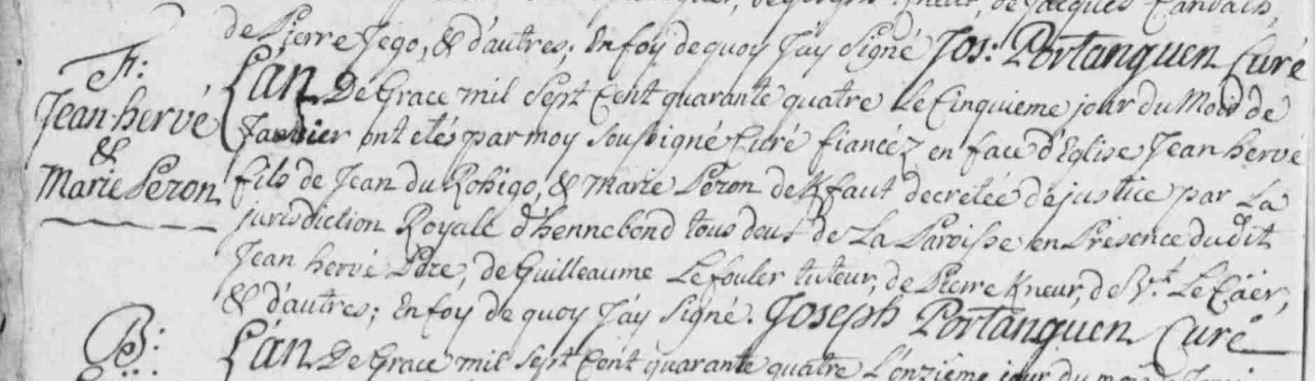 de Jacques
de Pierre Jego, & d'autres; En foy de quoy J'ay Signé Jos: Portanguen Curé
F:
Jean hervé
&
Marie Pezron
L'an De Grace mil Sept Cent quarante quatre Le Cinquieme jour du Mois de
Janvier ont etés par moy Soussigné Curé fiancéz en face d'Eglise Jean hervé
fils de Jean du Rohigo, & Marie Pezron de Kfaut decretée de justice par La
jurisdiction Royalle d'hennebond tous deux de La Paroisse en Presence dudit
Jean hervé Pere, de Guilleaume Le fouler tuteur, de Pierre Kneur, de Vt. Le Caër,
& d'autres; En foy de quoy J'ay Signé. Joseph Portanguen Curé
B:
L'an De Grace mil Sept Cent quarante quatre L'onziéme jour du mois